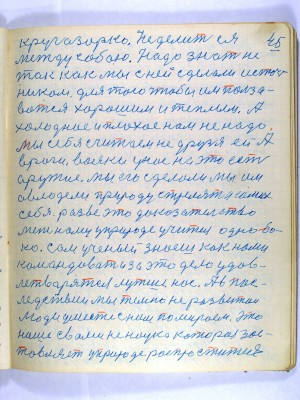 кругазорко. Не делит ся 45
между собою. Надо знат не
так как мы с ней сделали источ
ником, для того чтобы им польза-
ватся хорошим и теплым. А
холодное и плохое нам не надо.
Мы себя считаем не друзя ей А
враги, всяки у нас на это есть
аружие. Мы его сделали мы им
овлодели природу стрелят в самих
себя. разве это доказателство
меж наму уприроде учится одно бо-
ко. Сам ученый знаем как нами
командовать а за это дело удов-
летварятся лутше нас. А в пос-
ледствии мы темно не развитаи
люди уместе с ним помираем. Это
наше свами не наука которая зас-
товляет уприроде роспроститца